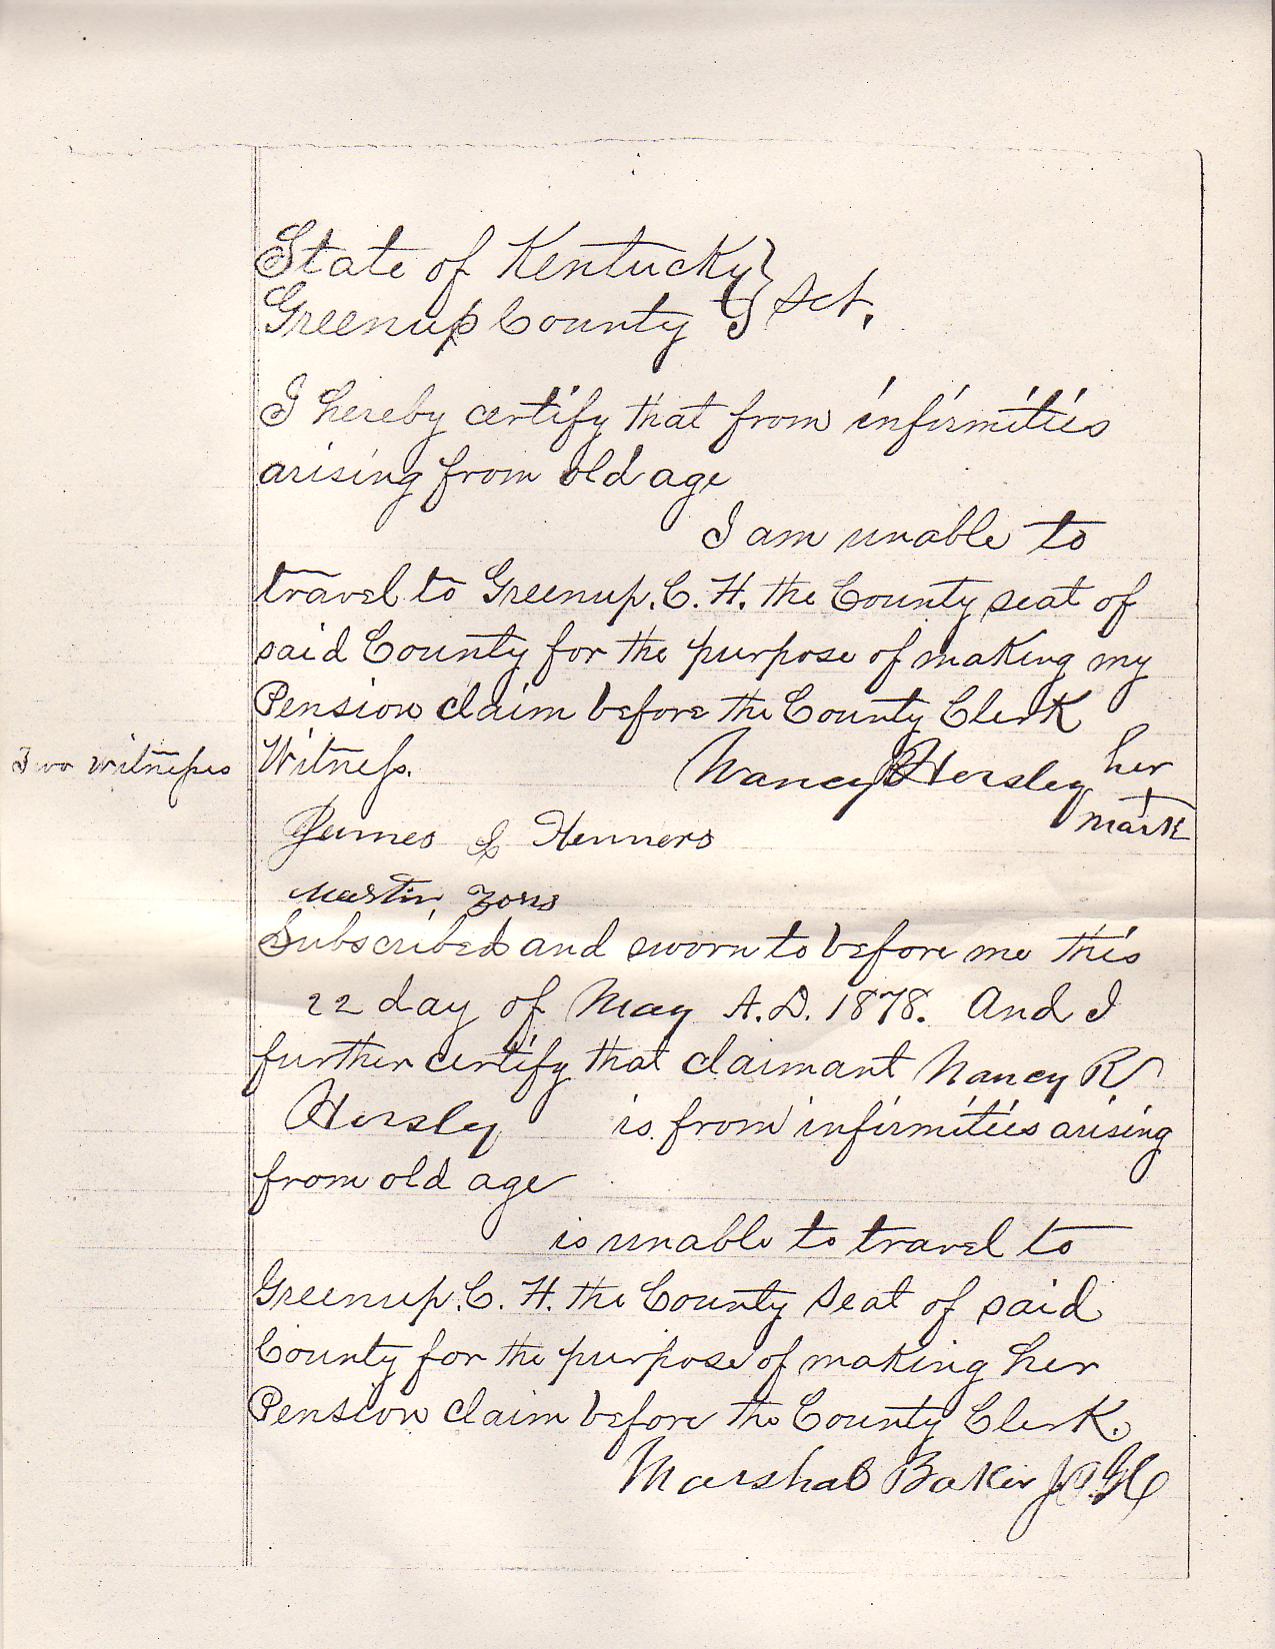 State of Kentucky }
Greenup County } Sct.
I hereby certify that from infirmities
arising from old age
I am unable to
travel to Greenup. C. H. the County seat of
said County for the purpose of making my
Pension claim before the County Clerk
Two witnesses
Witness. Nancy R Hersley her
mark
James Henners
Martin
Subscribed and sworn to before me this
22 day of May A.D. 1878. And I
further certify that claimant Nancy R
Hersley is from infirmities arising
from old age
is unable to travel to
Greenup. C. H. the County Seat of said
County for the purpose of making her
Pension claim before the County Clerk.
Marshal Baker